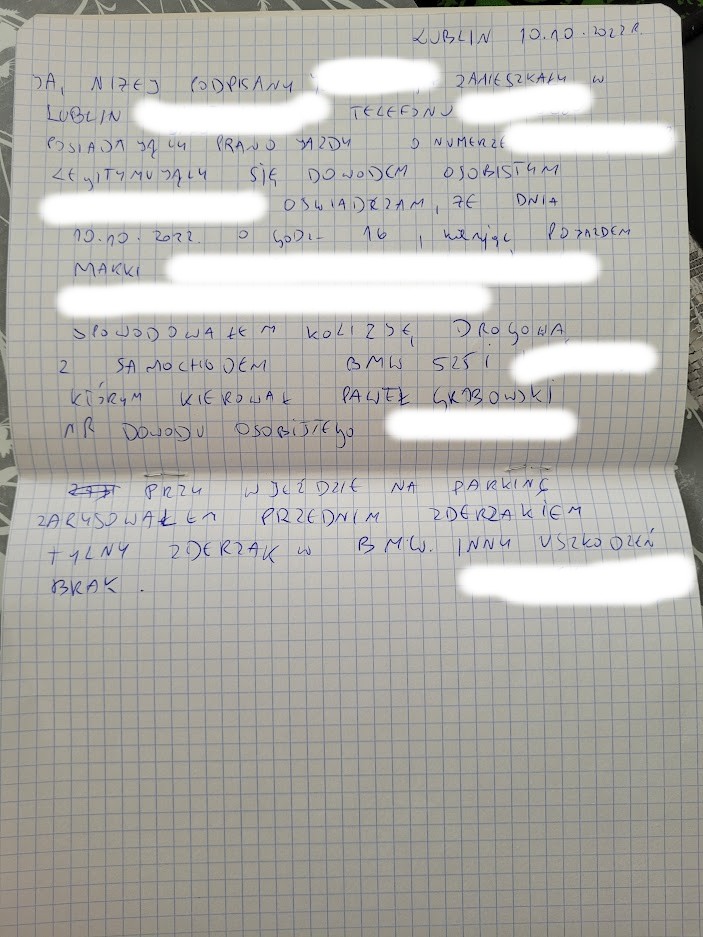 LUBLIN 10.10.2022 R.
JA, NIŻEJ PODPISANY ZAMIESZKAŁY W
LUBLIN TELEFONU
POSIADAJĄCY PRAWO JAZDY O NUMERZE
LEGITYMUJĄCY SIĘ DOWODEM OSOBISTYM
OŚWIADCZAM, ŻE DNIA
10.10.2022 O GODZ. 16, kierując POJAZDEM
MARKI
SPOWODOWAŁEM KOLIZJĘ DROGOWĄ
Z SAMOCHODEM BMW 525i
KTÓRYM KIEROWAŁ PAWEŁ GRABOWSKI
NR DOWODU OSOBISTEGO
PRZY WJEŹDZIE NA PARKING
ZARYSOWAŁEM PRZEDNIM ZDERZAKIEM
TYLNY ZDERZAK W BMW. INNY USZKODZEŃ
BRAK.